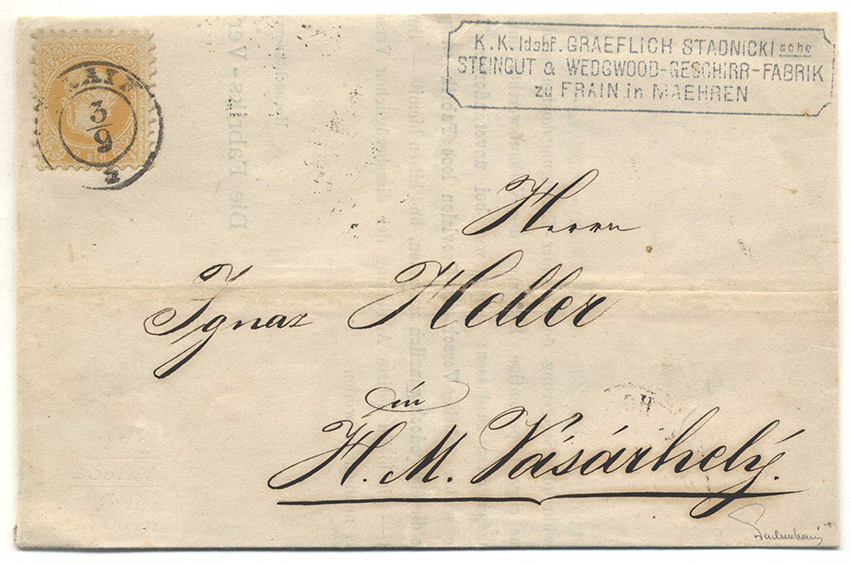 K. K. ldsbf. GRAEFLICH STADNICKI sche
STEINGUT & WEDGWOOD-GESCHIRR-FABRIK
zu FRAIN in MAEHREN
FRAIN
3/9
Herrn
Ignaz Heller
in
H. M. Vásárhelý.